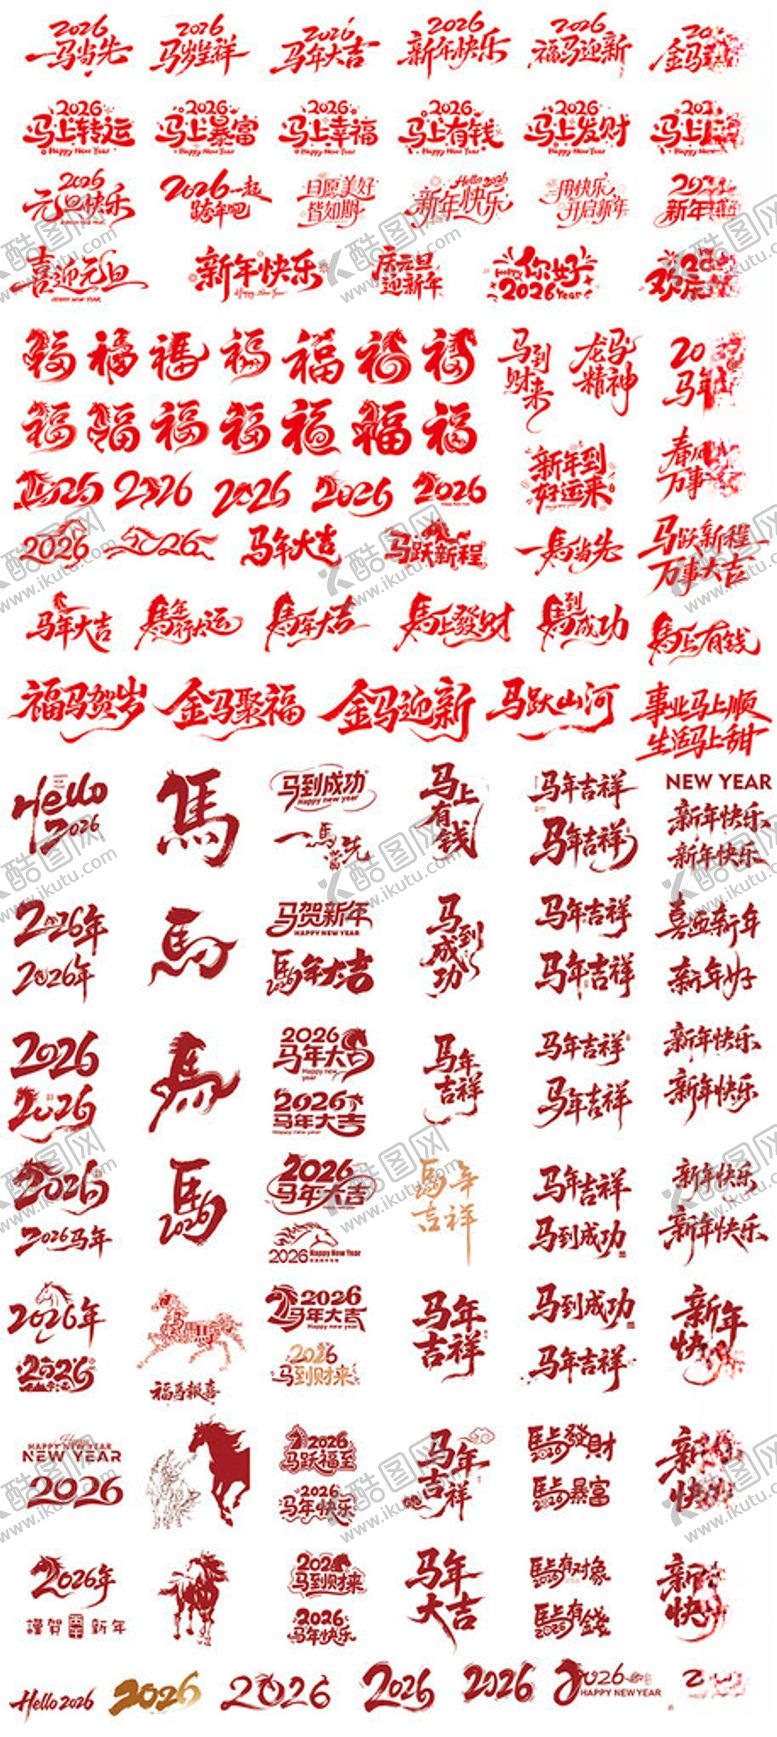 2026 2026 2026 2026 2026
一马当先 马岁呈祥 马年大吉 新年快乐 福马迎新 金马
2026 2026 2026 2026 2026
马上转运 马上暴富 马上幸福 马上有钱 马上发财 马上
Happy New Year Happy New Year Happy New Year Happy New Year Happy New Year
2026 2026一起 旦愿美好 Hello 2026 用快乐
元旦快乐 跨年吧 皆如期 新年快乐 开启新年 新年
喜迎元旦 新年快乐 庆元旦 你好
HAPPY NEW YEAR Happy New Year 迎新年 Happy 2026 Year
福 福 福 福 福 福 福 马到 龙马 20
财来 精神 马年
福 福 福 福 福 福 福 新年到 春风
好运来 万事
2026 2026 2026 2026 2026
2026 2026 马年大吉 马跃新程 一馬当先 马跃新程
万事大吉
马年大吉 馬年行大运 馬年大吉 馬上發财 馬到成功 馬上有钱
福马贺岁 金马聚福 金马迎新 马跃山河 事业马上顺
生活马上甜
Hello 馬 马到成功 马上 马年吉祥 NEW YEAR
2026 Happy new year 有钱 马年吉祥 新年快乐
一馬當先 新年快乐
2026年 馬 马贺新年 马到 马年吉祥 喜迎新年
HAPPY NEW YEAR 成功
2026年 馬年大吉 马年吉祥 新年好
2026 馬 2026 马年 马年吉祥 新年快乐
马年大吉 吉祥
Happy new year
2026 2026 马年吉祥 新年快乐
马年大吉
Happy new year
2026 馬 2026 馬年 马年吉祥 新年快乐
2026 马年大吉 吉祥
2026马年 2026 Happy New Year 马到成功 新年快乐
2026年 2026 马年 马到成功 新年
马年大吉 吉祥 快
Happy new year
2026 福馬報喜 2026 马年吉祥
马到财来
HAPPY NEW YEAR 2026 马年 馬上發財 新
NEW YEAR 马跃福至 吉祥 2026 快
2026 2026 馬上暴富
马年快乐 2026
2026年 2026 马年 馬上有对象 新
马到财来 大吉 2026 快
謹賀 新年 2026 馬上有錢
马年快乐 2026
Hello 2026 2026 2026 2026 2026 2026
HAPPY NEW YEAR
酷图网
www.ikutu.com